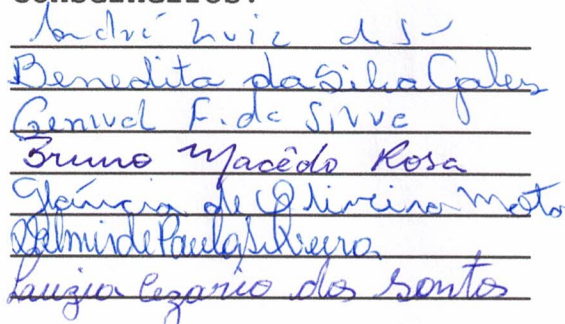 André Luiz de S
Benedita da Silva Gales
Genival F. da Silva
Bruno Macêdo Rosa
Gláucia de Oliveira Mato
Valmir de Paula Silveira
Luzia Cezario dos Santos